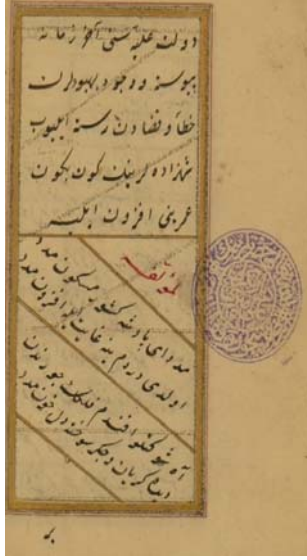 دولت علیه سنی آخر زمانه
پیوسته و وجود بهبودلرن
خطا و قضادن رسته ایلیوب
شهزاده لرینك كون بكون
عمرینی افزون ایلیه
لمؤلفه
مدد ای پادشه كشور مسكون مدد
اولدی دردم به غایت ایله افزون مدد
آه شوكتلو افندم فلكك جورندن
دیده گریان و جگر سوخته دل خون مدد